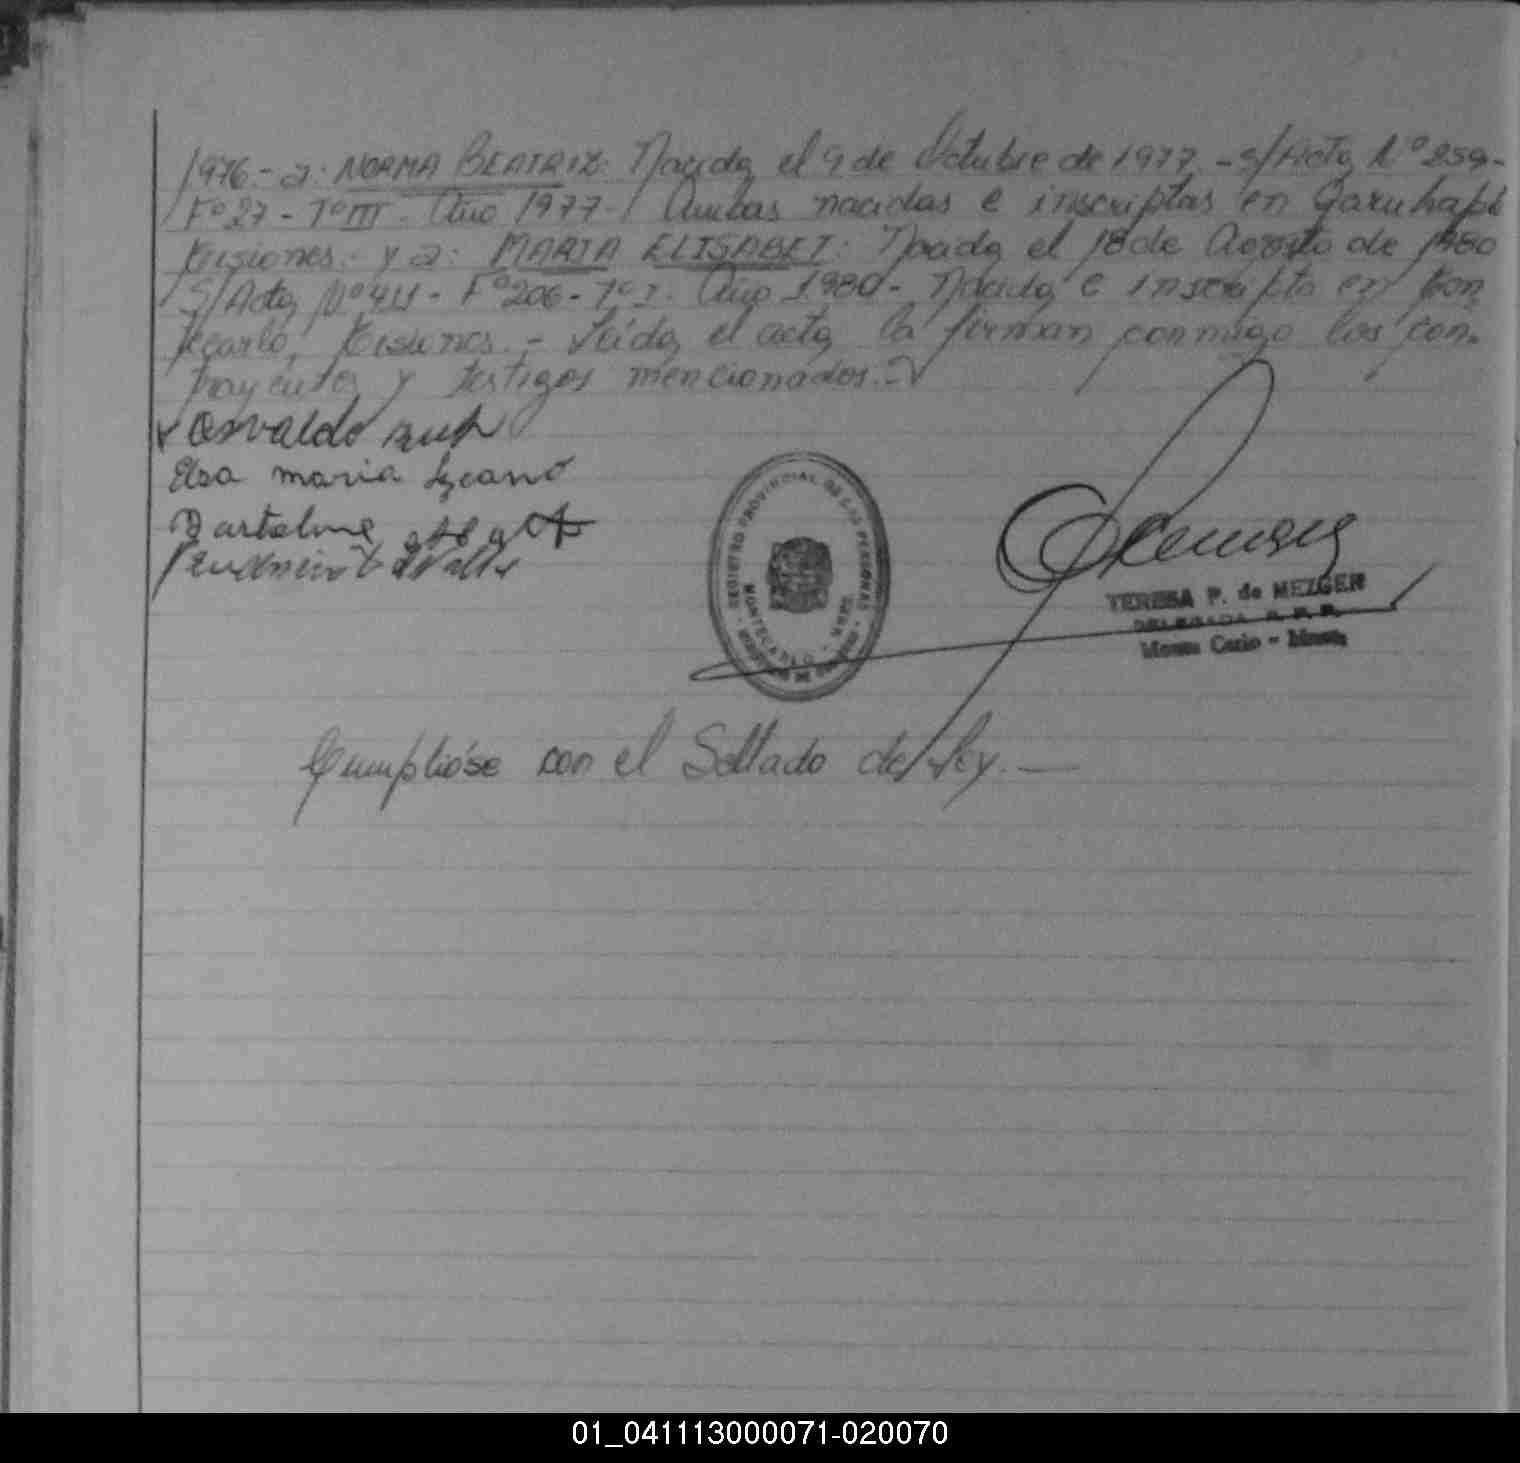 1976.- a: NORMA BEATRIZ: Nacida el 9 de Octubre de 1977.- S/Acta Nº 259-
Fº 27 - Tº III. Año 1977.- Ambas nacidas e inscriptas en Garuhapé
Misiones.- y a: MARIA ELISABET: Nacida el 18 de Agosto de 1980
S/Acta Nº 411- Fº 206- Tº I. Año 1980- Nacida e inscripta en Mon
tecarlo, Misiones.- Leída el acta, la firman conmigo los con.
trayentes y testigos mencionados.-
Osvaldo
Elsa maria Lezcano
REGISTRO PROVINCIAL DE LAS PERSONAS
MONTECARLO - MNES.
TERESA P. de MEZGER
DELEGADA R. P. P.
Monte Carlo - Mnes.
Cumplióse con el Sellado de Ley.—
01_041113000071-020070